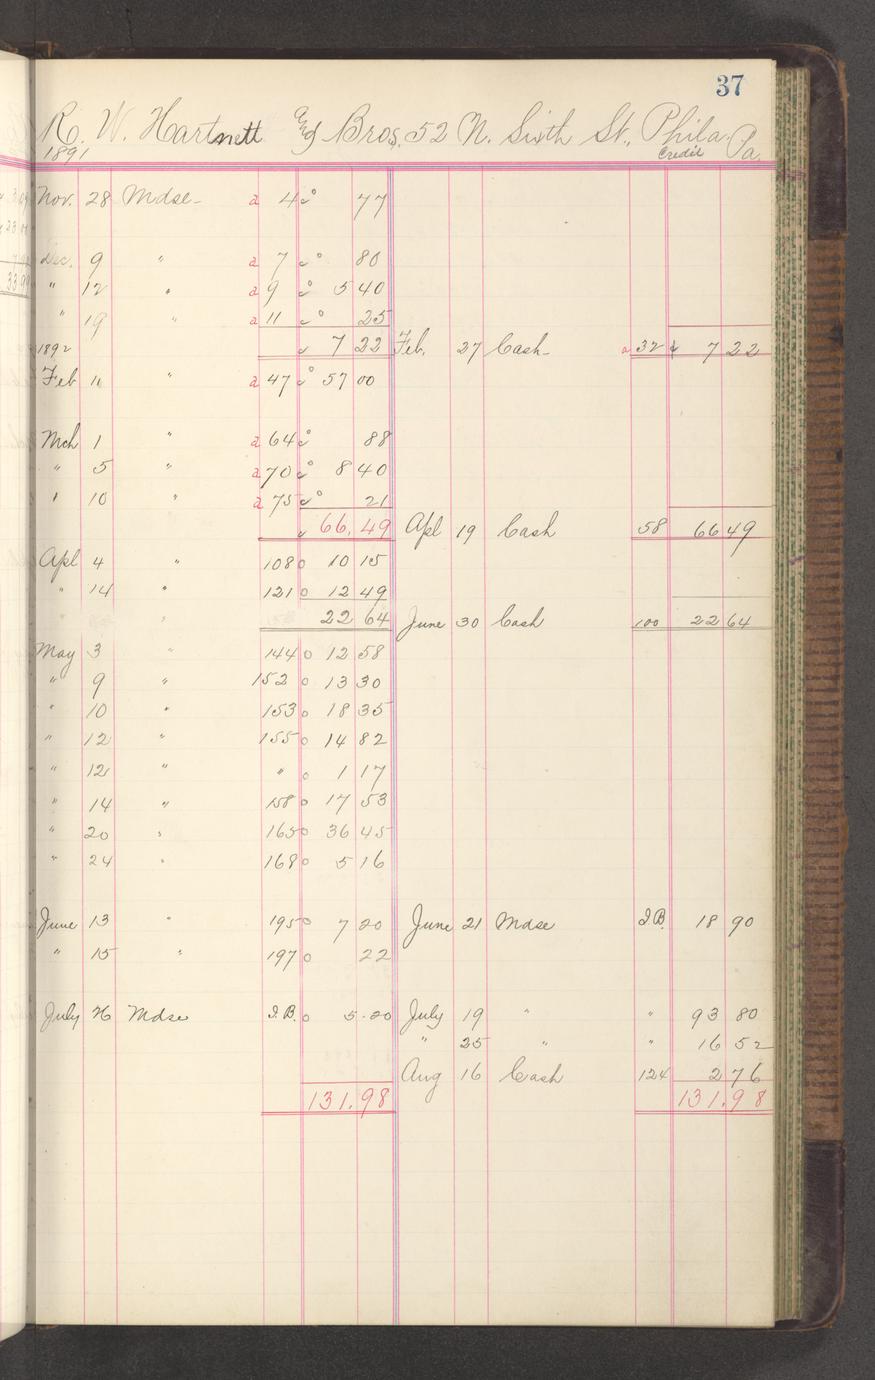 37
R. W. Hartnett and Bros. 52 N. Sixth St., Phila. Pa.
1891 Credit
Nov. 28 Mdse a 4 77
Dec. 9 " a 7 80
" 12 " a 9 5 40
" 19 " a 11 25
1892 7 22 Feb. 27 Cash a 32 7 22
Feb 11 " a 47 57 00
Mch 1 " a 64 88
" 5 " a 70 8 40
" 10 " a 75 21
66.49 Apl 19 Cash 58 66 49
Apl 4 " 108 10 15
" 14 " 121 12 49
22 64 June 30 Cash 100 22 64
May 3 " 144 12 58
" 9 " 152 13 30
" 10 " 153 18 35
" 12 " 155 14 82
" 12 " " 1 17
" 14 " 158 17 53
" 20 " 165 36 45
" 24 " 168 5 16
June 13 " 195 7 20 June 21 Mdse J.B. 18 90
" 15 " 197 22
July 26 Mdse J.B. 5.20 July 19 " " 93 80
" 25 " " 16 52
Aug 16 Cash 124 2 76
131.98 131.98